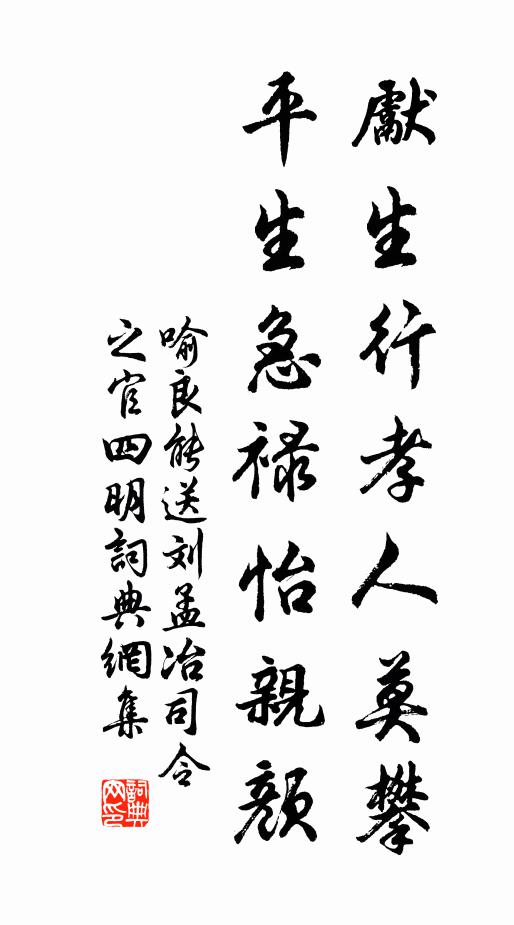 獻生行孝人莫攀
平生急禄怡親顏
喻良能送刘孟冶司令
之官四明詞典網集
詞典
网印